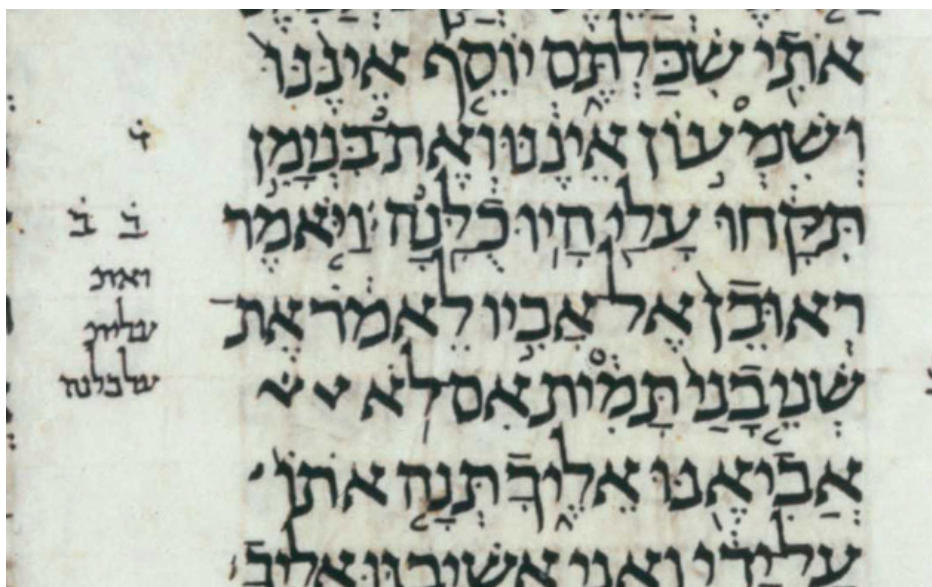 אֹתִי שִׁכַּלְתֶּם יוֹסֵף אֵינֶנּוּ
וְשִׁמְעוֹן אֵינֶנּוּ וְאֶת בִּנְיָמִן
תִּקָּחוּ עָלַי הָיוּ כֻלָּנָה וַיֹּאמֶר
רְאוּבֵן אֶל אָבִיו לֵאמֹר אֶת
שְׁנֵי בָנַי תָּמִית אִם לֹא
אֲבִיאֶנּוּ אֵלֶיךָ תְּנָה אֹתוֹ
עַל יָדִי וַאֲנִי אֲשִׁיבֶנּוּ אֵלֶיךָ
ב ב